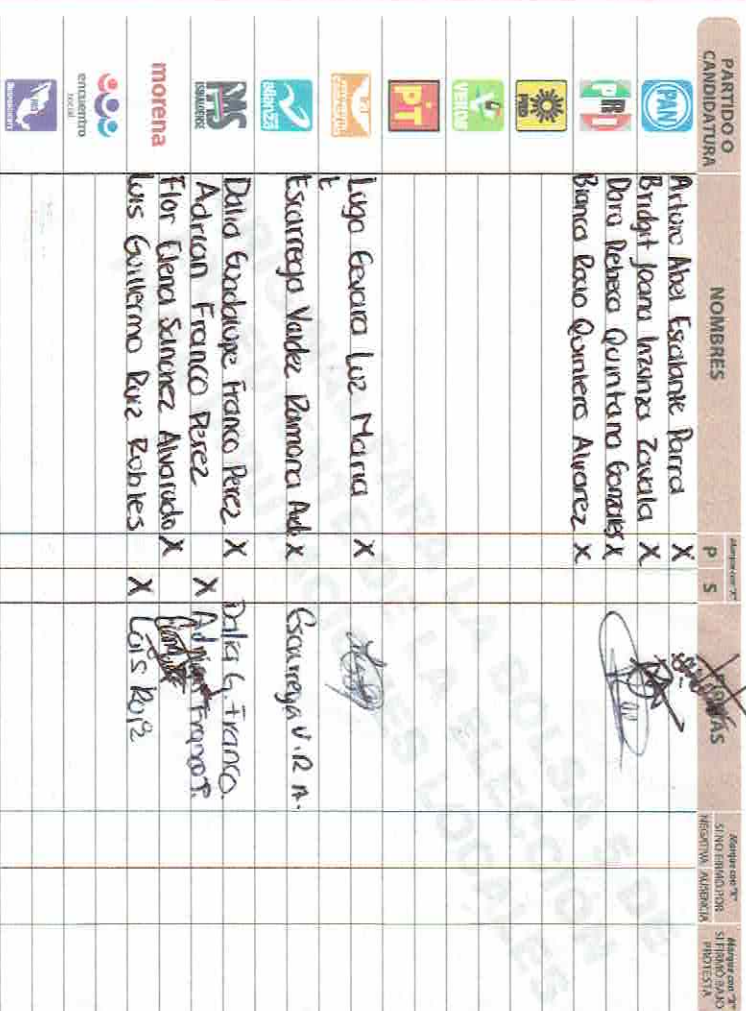 PARTIDO O CANDIDATURA
NOMBRES
Marque con "X"
P S
FIRMAS
Marque con "X" SI NO FIRMÓ POR
NEGATIVA AUSENCIA
Marque con "X" SI FIRMÓ BAJO PROTESTA
PAN
Arturo Abel Escalante Parra X
Bridgit Joana Inzunza Zavala X
PRI
Dora Rebeca Quintana Gonzales X
Bianca Rocio Quintero Alvarez X
PRD
VERDE
PT
Lugo Gevara Luz Maria X
t
alianza
Escarrega Valdez Ramona X Escarrega V. R A.
PMS
Dalia Guadalupe Franco Perez X Dalia G. Franco.
Adrian Franco Perez X Adrian Franco P.
morena
Flor Elena Sanchez Alvarado X
Luis Guillermo Ruiz Robles X Luis Ruiz
encuentro
social
PARA LA BOLSA DE
DE LA ELECCIÓN
LOCALES